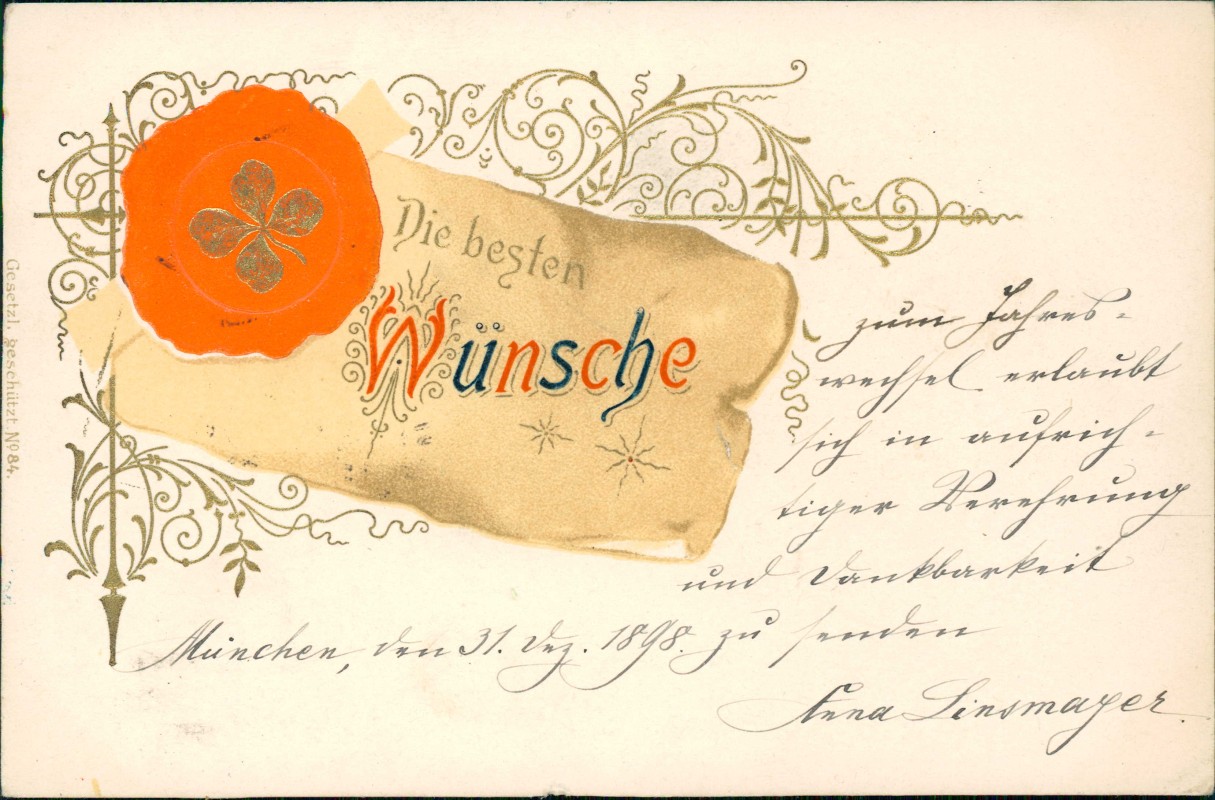 Gesetzl. geschützt. Nº 84.
Die besten
Wünsche
zum Jahres-
wechsel erlaubt
sich in aufrich-
tiger Verehrung
und Dankbarkeit
zu senden
München, den 31. Dez. 1898.
Anna Linsmayer.